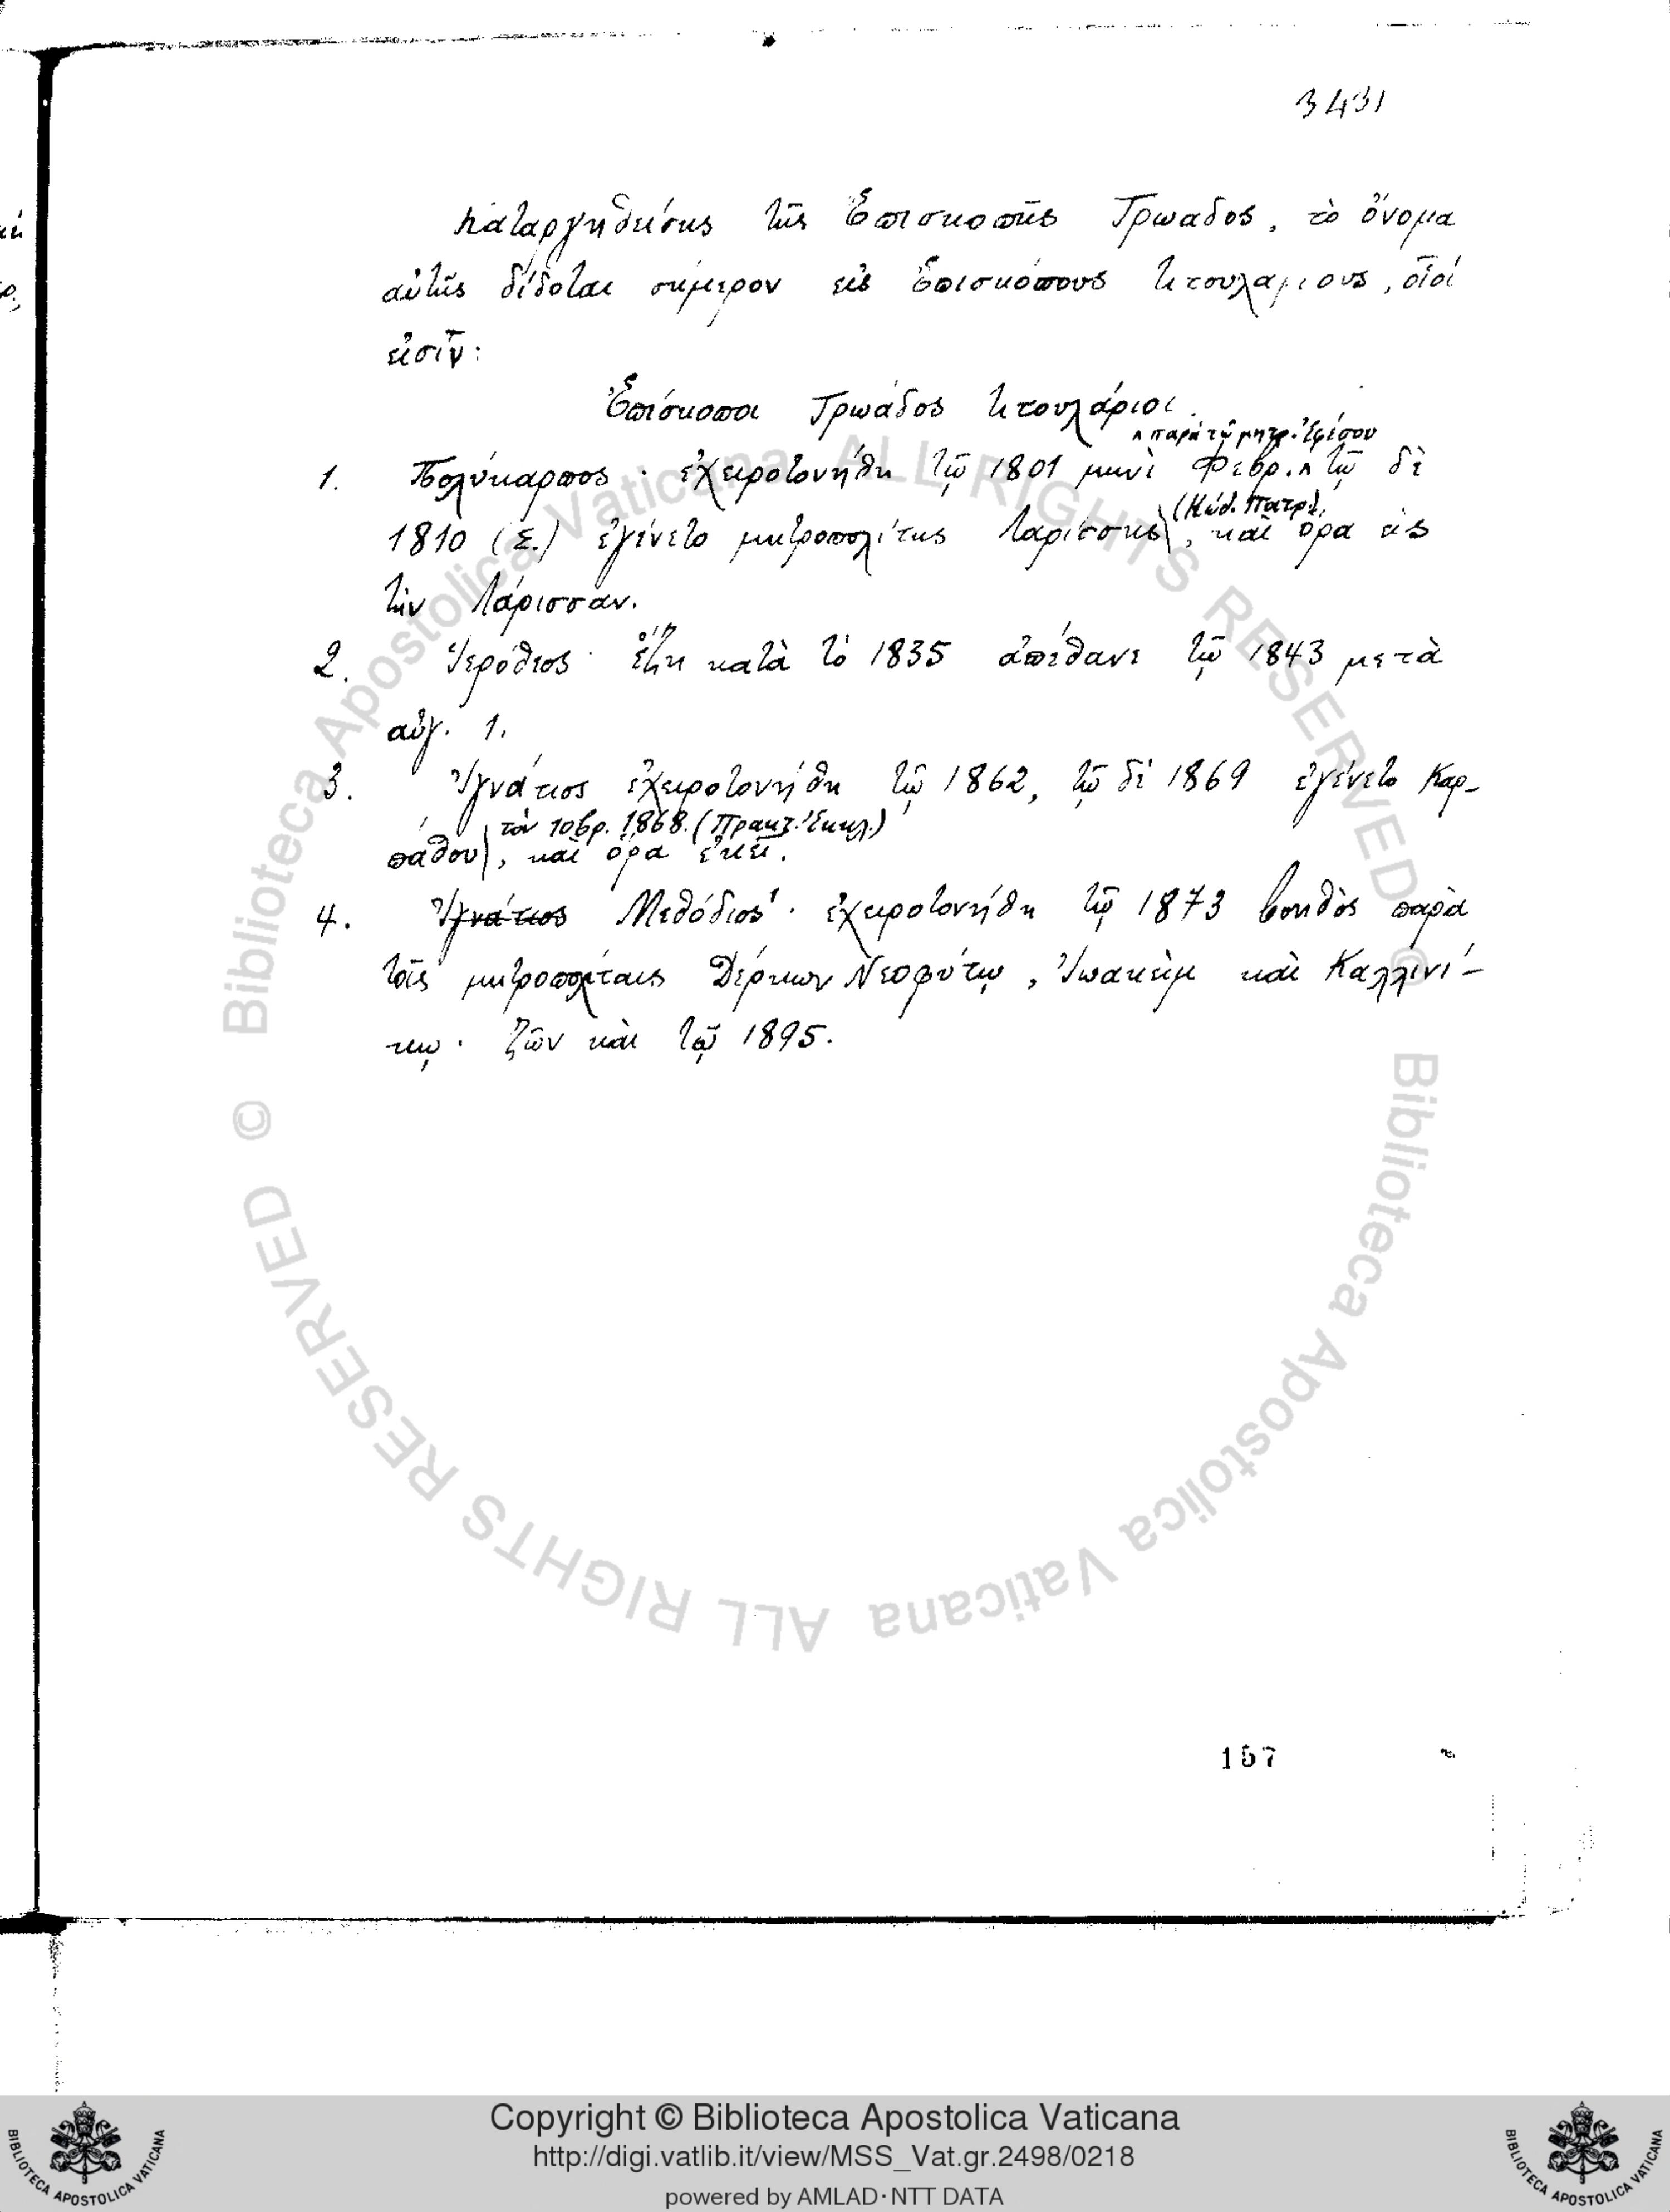 3431
Καταργηθείσης τῆς Ἐπισκοπῆς Τρωάδος, τὸ ὄνομα
αὐτῆς δίδοται σήμερον εἰς Ἐπισκόπους τιτουλαρίους, οἵτοί
εἰσῖν:
Ἐπίσκοποι Τρωάδος τιτουλάριοι.
^ παρὰ τῷ μητρ. Ἐφέσου
1. Πολύκαρπος· ἐχειροτονήθη τῷ 1801 μηνὶ Φεβρ. ^ τῷ δὲ
(Κώδ. Πατρ.),
1810 (Σ.) ἐγένετο μητροπολίτης Λαρίσσης, καὶ ὅρα εἰς
τὴν Λάρισσαν.
2. Ἱερόθεος· ἔζη κατὰ τὸ 1835 ἀπέθανε τῷ 1843 μετὰ
αὐγ. 1.
3. Ἰγνάτιος ἐχειροτονήθη τῷ 1862, τῷ δὲ 1869 ἐγένετο Καρ-
τὸν 10βρ. 1868. (Πρακτ. Ἐκκλ.)
πάθου, καὶ ὅρα ἐκεῖ.
4. Ἰγνάτιος Μεθόδιος· ἐχειροτονήθη τῷ 1873 βοηθὸς παρὰ
τοῖς μητροπολίταις Δέρκων Νεοφύτῳ, Ἰωακεὶμ καὶ Καλλινί-
κῳ· ζῶν καὶ τῷ 1895.
157
© Biblioteca Apostolica Vaticana ALL RIGHTS RESERVED
© Biblioteca Apostolica Vaticana ALL RIGHTS RESERVED
Copyright © Biblioteca Apostolica Vaticana
http://digi.vatlib.it/view/MSS_Vat.gr.2498/0218
powered by AMLAD·NTT DATA
BIBLIOTECA APOSTOLICA VATICANA
BIBLIOTECA APOSTOLICA VATICANA